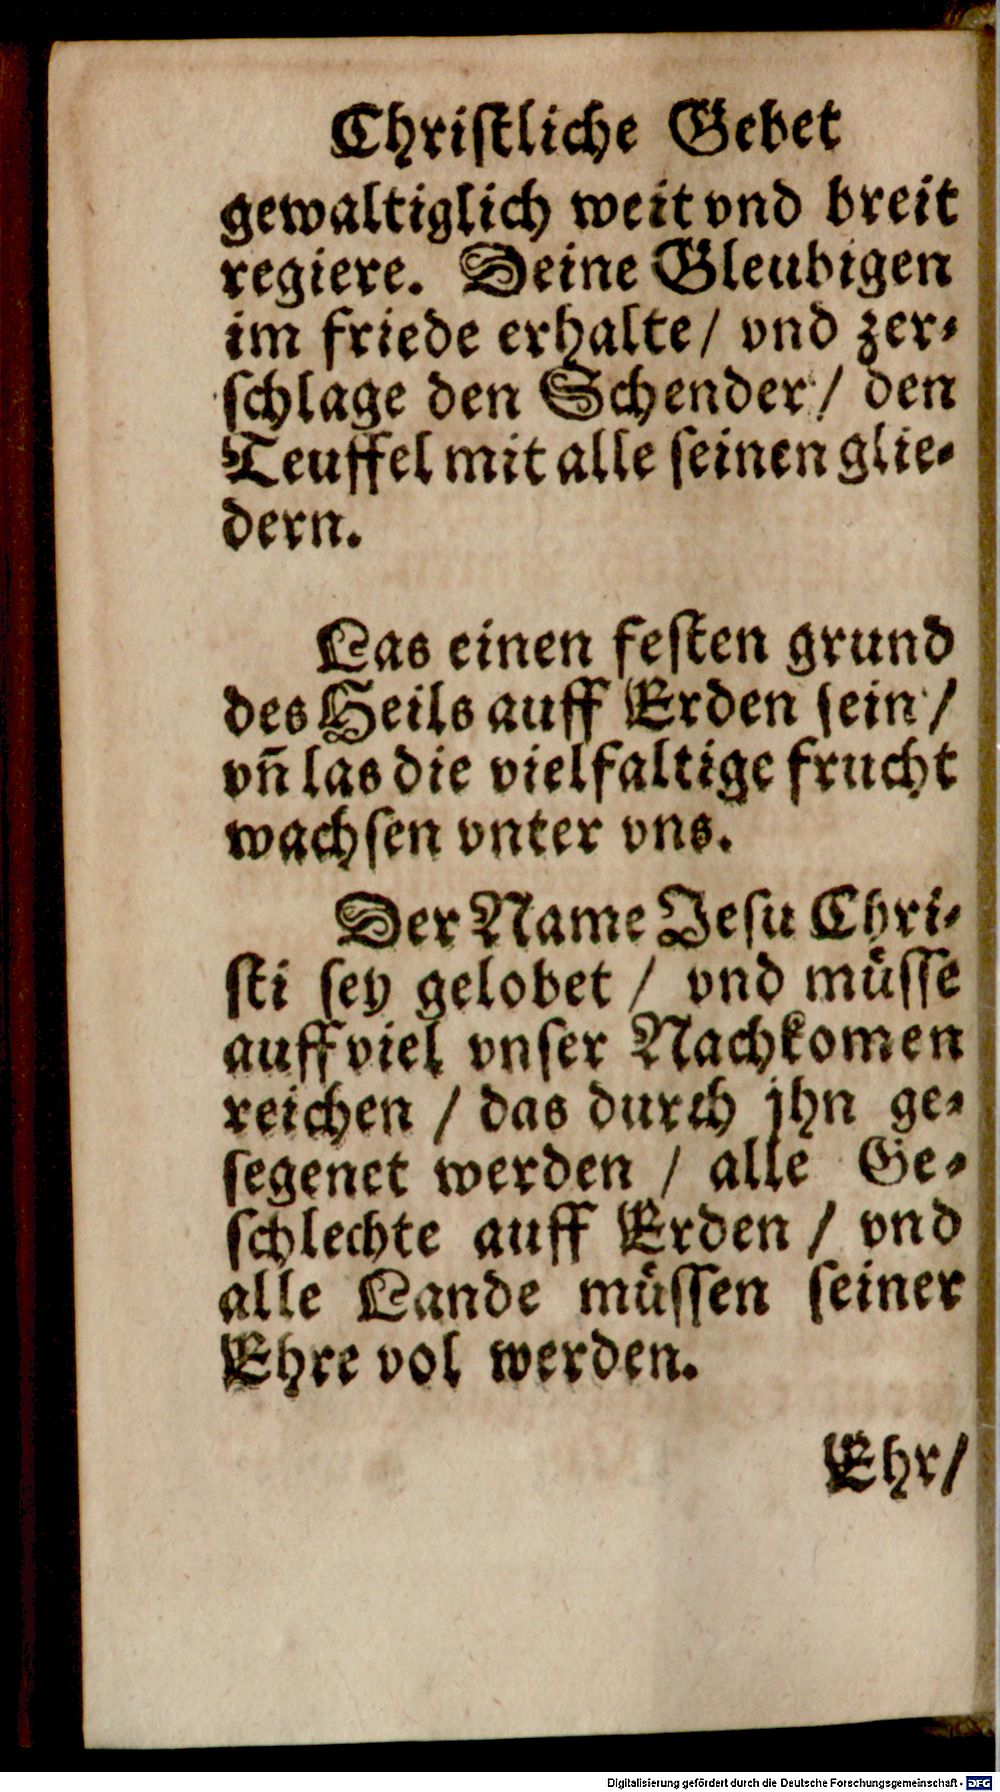 Christliche Gebet
gewaltiglich weit vnd breit
regiere. Deine Gleubigen
im friede erhalte / vnd zer-
schlage den Schender / den
Teuffel mit alle seinen glie-
dern.
Las einen festen grund
des Heils auff Erden sein /
vn̄ las die vielfaltige frucht
wachsen vnter vns.
Der Name Jesu Chri-
sti sey gelobet / vnd müsse
auff viel vnser Nachkomen
reichen / das durch jhn ge-
segenet werden / alle Ge-
schlechte auff Erden / vnd
alle Lande müssen seiner
Ehre vol werden.
Ehr/
Digitalisierung gefördert durch die Deutsche Forschungsgemeinschaft - DFG